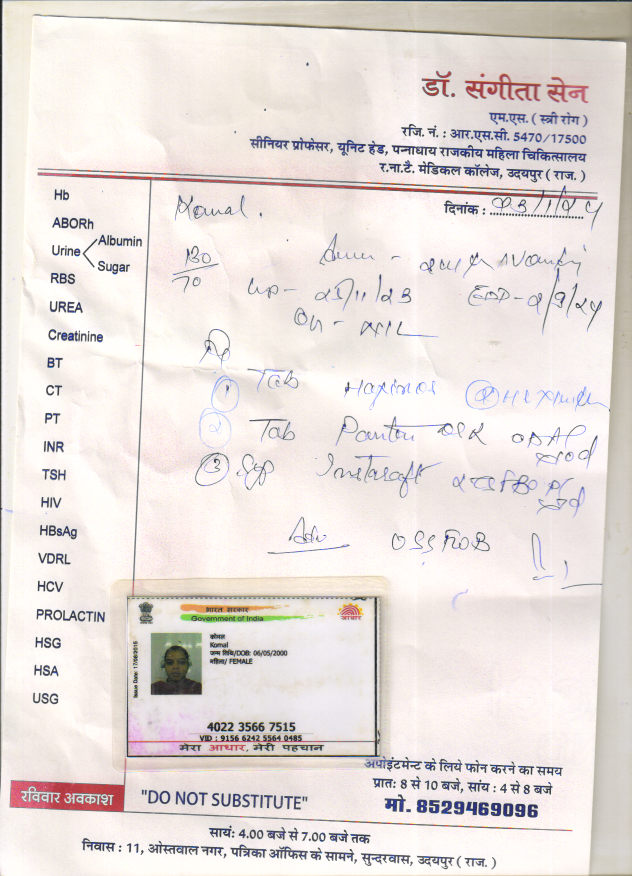 डॉ. संगीता सेन
एम.एस. ( स्त्री रोग )
रजि. नं. : आर.एस.सी. 5470/17500
सीनियर प्रोफेसर, यूनिट हेड, पन्नाधाय राजकीय महिला चिकित्सालय
र.ना.टै. मेडिकल कॉलेज, उदयपुर ( राज. )
दिनांक : 23/1/24
Hb
ABORh
Urine Albumin
Sugar
RBS
UREA
Creatinine
BT
CT
PT
INR
TSH
HIV
HBsAg
VDRL
HCV
PROLACTIN
HSG
HSA
USG
Komal.
130/70
LMP- 25/11/23 EDD- 2/9/24
O/H - NIL
Rx
① Tab
② Tab Panton DSR
③ Syp
Adv
भारत सरकार
Government of India
आधार
Issue Date: 17/08/2015
कोमल
Komal
जन्म तिथि/DOB: 06/05/2000
महिला/ FEMALE
4022 3566 7515
VID : 9156 6242 5564 0485
मेरा आधार, मेरी पहचान
अपोइंटमेन्ट के लिये फोन करने का समय
प्रातः 8 से 10 बजे, सांय : 4 से 8 बजे
मो. 8529469096
रविवार अवकाश
"DO NOT SUBSTITUTE"
सायं: 4.00 बजे से 7.00 बजे तक
निवास : 11, ओस्तवाल नगर, पत्रिका ऑफिस के सामने, सुन्दरवास, उदयपुर ( राज. )